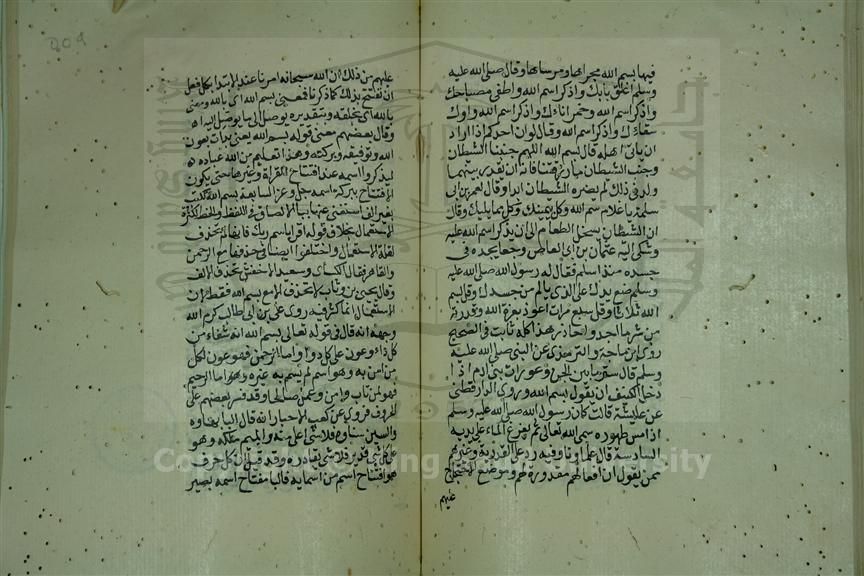 فيها بسم الله مجراها ومرساها وقال صلى الله عليه
وسلم اغلق بابك واذكر اسم الله واطفى مصباحك
واذكر اسم الله وخمر اناءك واذكر اسم الله واوك
سقاءك واذكر اسم الله وقال لو ان احدكم اذا اراد
ان ياتى اهله قال بسم الله اللهم جنبنا الشيطان
وجنب الشيطان ما رزقتنا فانه ان يقدر بينهما
ولد في ذلك لم يضره الشيطان ابدا وقال لعمر بن ابى
سلمة يا غلام سم الله وكل بيمينك وكل مما يليك وقال
ان الشيطان يستحل الطعام الا ان يذكر اسم الله عليه
وشكى اليه عثمان بن ابى العاص وجعا يجده فى
جسده منذ اسلم فقال له رسول الله صلى الله عليه
وسلم ضع يدك على الذى يالم من جسدك وقل بسم
الله ثلاثا وقل سبع مرات اعوذ بعزة الله وقدرته
من شر ما اجد واحاذر هذا كله ثابت فى الصحيح
روى ابن ماجة والترمذى عن النبى صلى الله عليه
وسلم قال ستر ما بين الجن وعورات بنى ادم اذا
دخل الكنف ان يقول بسم الله وروى الدارقطنى
عن عائشة قالت كان رسول الله صلى الله عليه وسلم
اذا مس طهوره سمى الله تعالى ثم يفرغ الماء على يديه
السادسة قال علماونا وفيه رد على القدرية وغيرهم
ممن يقول ان افعالهم مقدورة لهم وموضع الاحتجاج
عليهم
عليهم من ذلك ان الله سبحانه امرنا عند الابتداء بكل فعل
ان نفتتح بذلك كما ذكرنا فمعنى بسم الله اى بالله ومعنى
بالله اى بخلقه وبتقديره يوصل الى ما يوصل اليه اه
وقال بعضهم معنى قوله بسم الله يعنى بدات بعون
الله وتوفيقه وبركته وهذا تعليم من الله عباده
ليذكروا اسمه عند افتتاح القراة وغيرها حتى يكون
الافتتاح ببركة اسمه جل وعز السابعة بسم الله كتبت
بغير الف استغنى عنها ببا الالصاق فى اللفظ والخط لكثرة
الاستعمال بخلاف قوله اقرا باسم ربك فانها لم تحذف
لقلة الاستعمال واختلفوا ايضا فى حذفها مع الرحمن
والقاهر فقال الكسائى وسعيد الاخفش تحذف الالف
وقال يحيى بن وثاب لا تحذف الا مع بسم الله فقط لان
الاستعمال انما كثر فيه روى على بن ابى طالب كرم الله
وجهه انه قال فى قوله تعالى بسم الله انه شفاء من
كل داء وعون على كل دوا واما الرحمن فهو عون لكل
من امن به وهو اسم لم يسم به غيره وهو اما الرحيم
فهو لمن تاب وامن وعمل صالحا وقد فسر بعضهم على
الحروف فروى عن كعب الاحبار انه قال البا بهاوه
والسين سناوه فلا شى اعلى منه والميم ملكه وهو
على كل شى قدير فلا شى يقادره وقد قيل ان كل حرف
هو افتتاح اسم من اسمايه فالبا مفتاح اسمه بصير